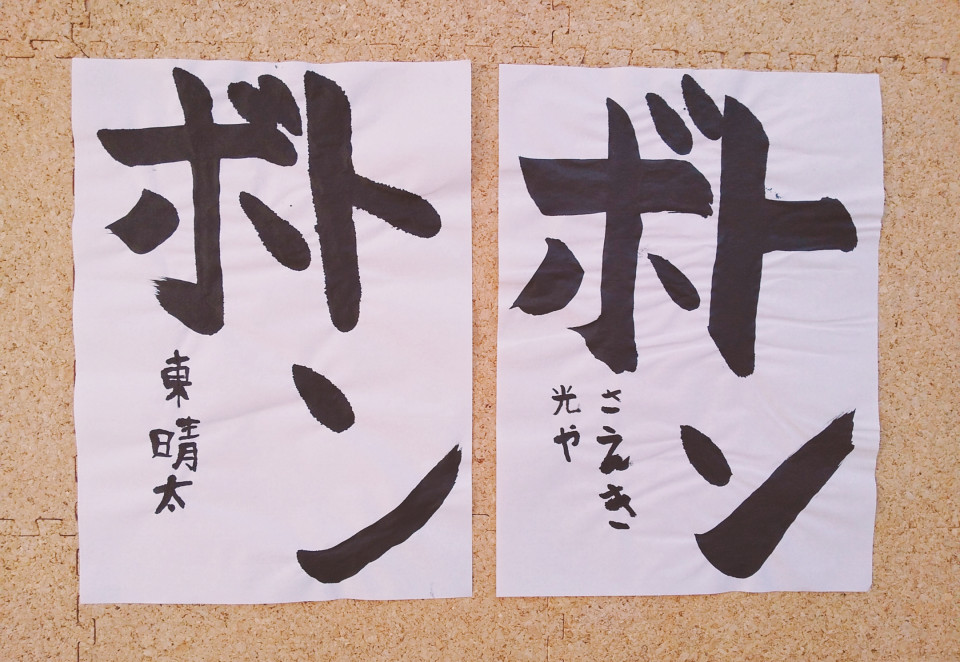 トン
ボ
さえき
光や
トン
ボ
東晴太